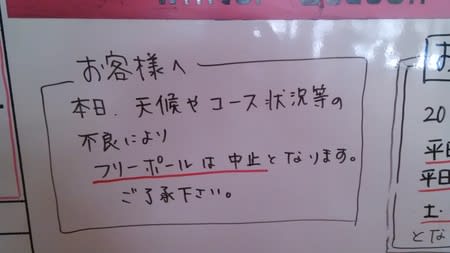 お客様へ
本日、天候やコース状況等の
不良により
フリーポールは中止となります。
ご了承下さい。
お
20
平日
平日
土・
とな